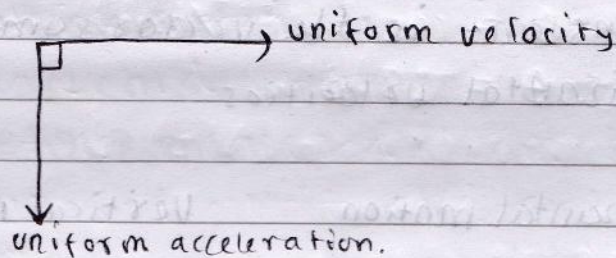 uniform velocity
uniform acceleration.